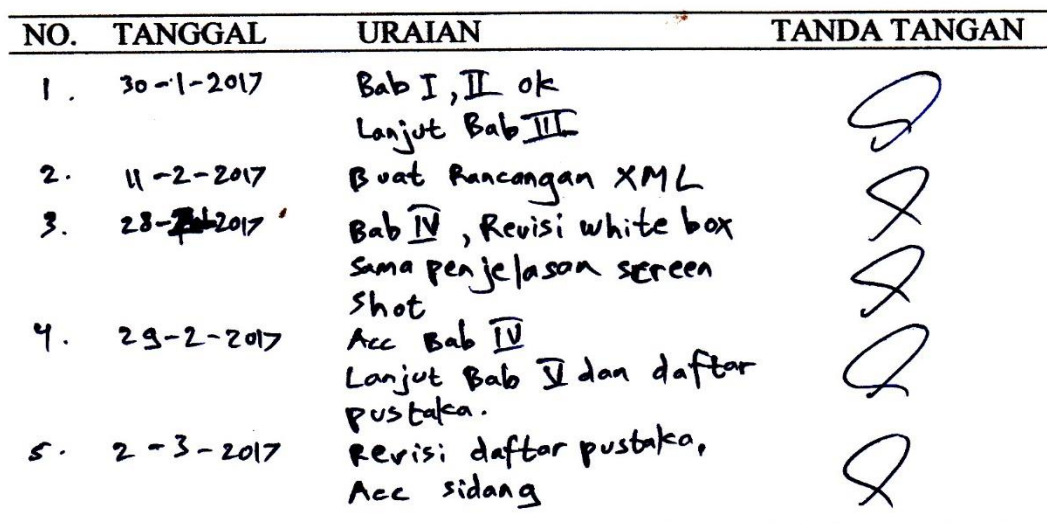 NO. TANGGAL URAIAN TANDA TANGAN
1. 30-1-2017 Bab I, II ok
Lanjut Bab III
2. 11-2-2017 Buat Rancangan XML
3. 28-2017 Bab IV, Revisi white box
Sama penjelasan screen
shot
4. 29-2-2017 Acc Bab IV
Lanjut Bab V dan daftar
pustaka.
5. 2-3-2017 Revisi daftar pustaka,
Acc sidang